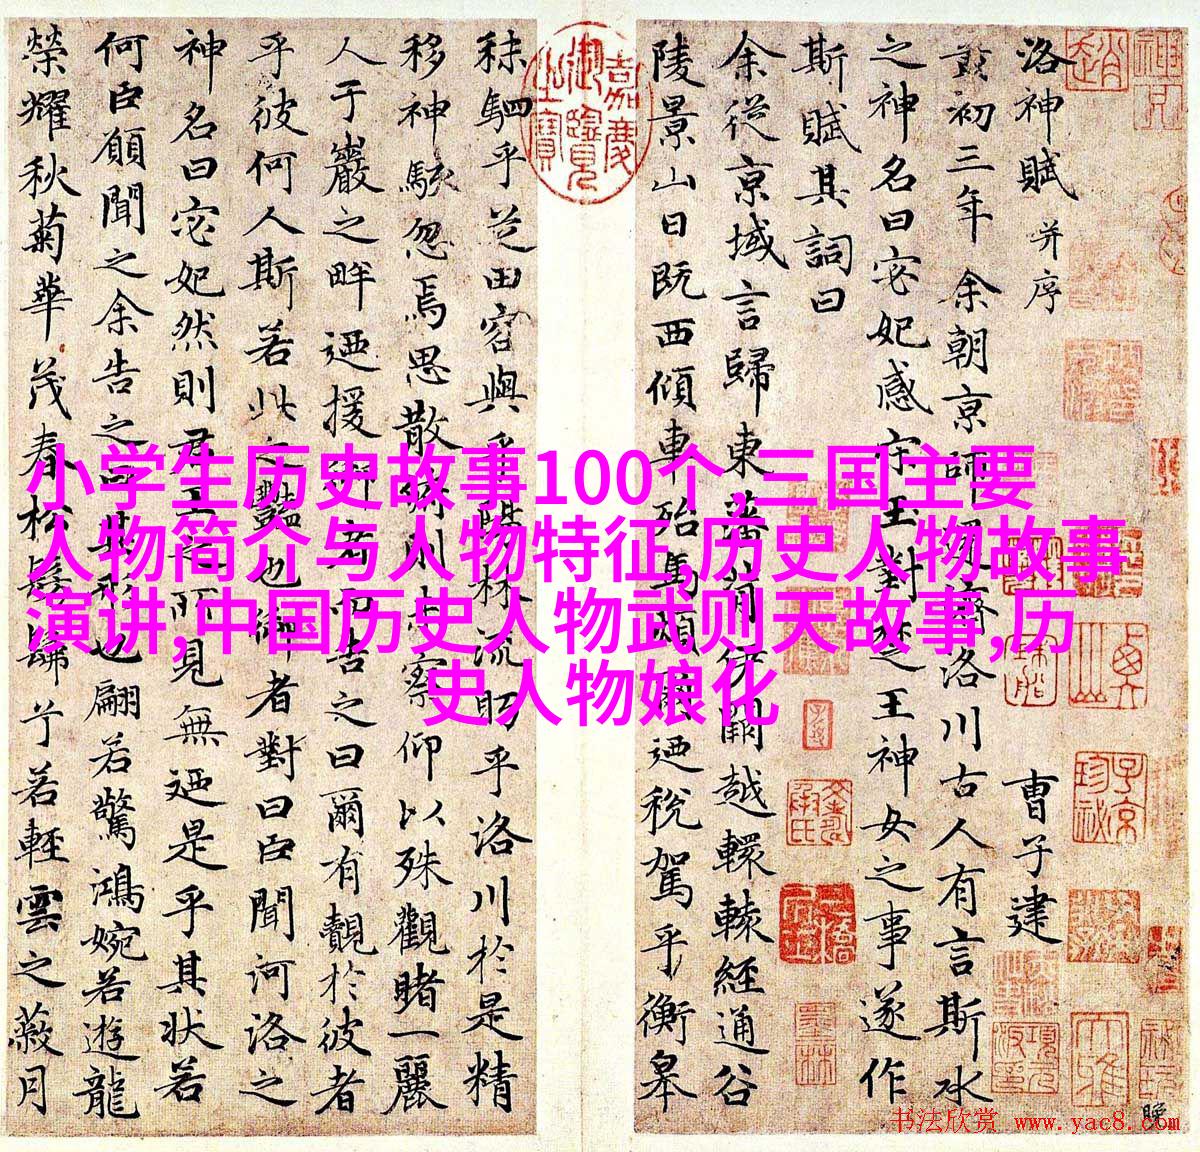 洛神賦 并序 曹子建
黃初三年余朝京師還濟洛川古人有言斯水
之神名曰宓妃感宋玉對楚王神女之事遂作
斯賦其詞曰
余從京域言歸東藩背伊闕越轘轅經通谷
陵景山日既西傾車殆馬煩爾迺稅駕乎衡皋
秣駟乎芝田容與乎陽林流眄乎洛川於是精
移神駭忽焉思散俯則未察仰以殊觀睹一麗
人于巖之畔迺援御者而告之曰爾有覿於彼者
乎彼何人斯若此之豔也御者對曰臣聞河洛之
神名曰宓妃然則君王之所見無迺是乎其狀若
何臣願聞之余告之曰其形也翩若驚鴻婉若遊龍
榮耀秋菊華茂春松髣髴兮若輕雲之蔽月
嘉慶御覽之寶
小学生历史故事100个,三国主要
人物简介与人物特征,历史人物故事
演讲,中国历史人物武则天故事,历
史人物娘化
书法欣赏 www.yac8.com